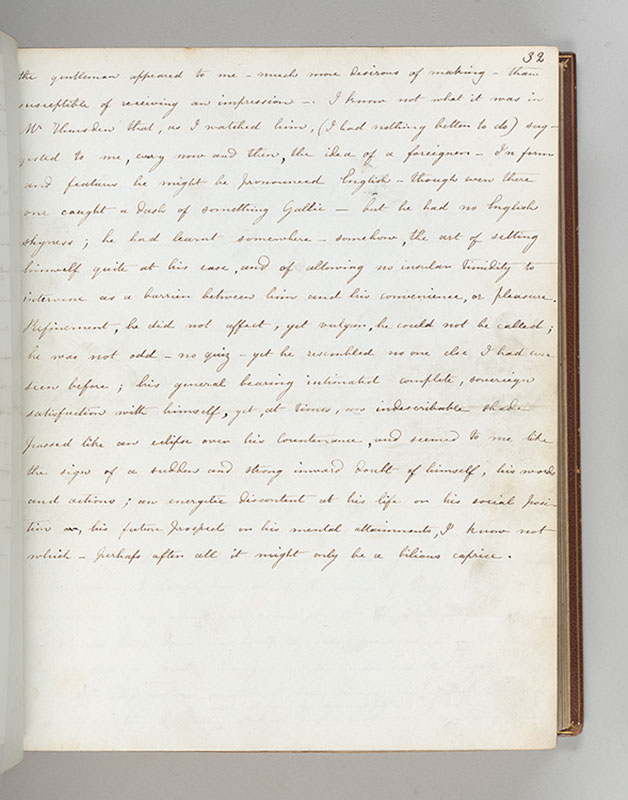 32
the gentleman appeared to me - much more desirous of making - than
susceptible of receiving an impression - I know not what it was in
Mr Hunsden that, as I watched him, (I had nothing better to do) sug-
gested to me, every now and then, the idea of a foreigner - In form
and features he might be pronounced English - though even there
one caught a dash of something Gallic - but he had no English
shyness; he had learnt somewhere - somehow, the art of setting
himself quite at his ease, and of allowing no insular timidity to
intervene as a barrier between him and his convenience, or pleasure.
Refinement, he did not affect, yet vulgar, he could not be called;
he was not odd - no quiz - yet he resembled no one else I had ever
seen before; his general bearing intimated complete, sovereign
satisfaction with himself, yet, at times, an indescribable shade
passed like an eclipse over his countenance, and seemed to me like
the sign of a sudden and strong inward doubt of himself, his words
and actions; an energetic discontent at his life or his social posi-
tion or, his future prospects or his mental attainments, I know not
which - perhaps after all it might only be a bilious caprice.